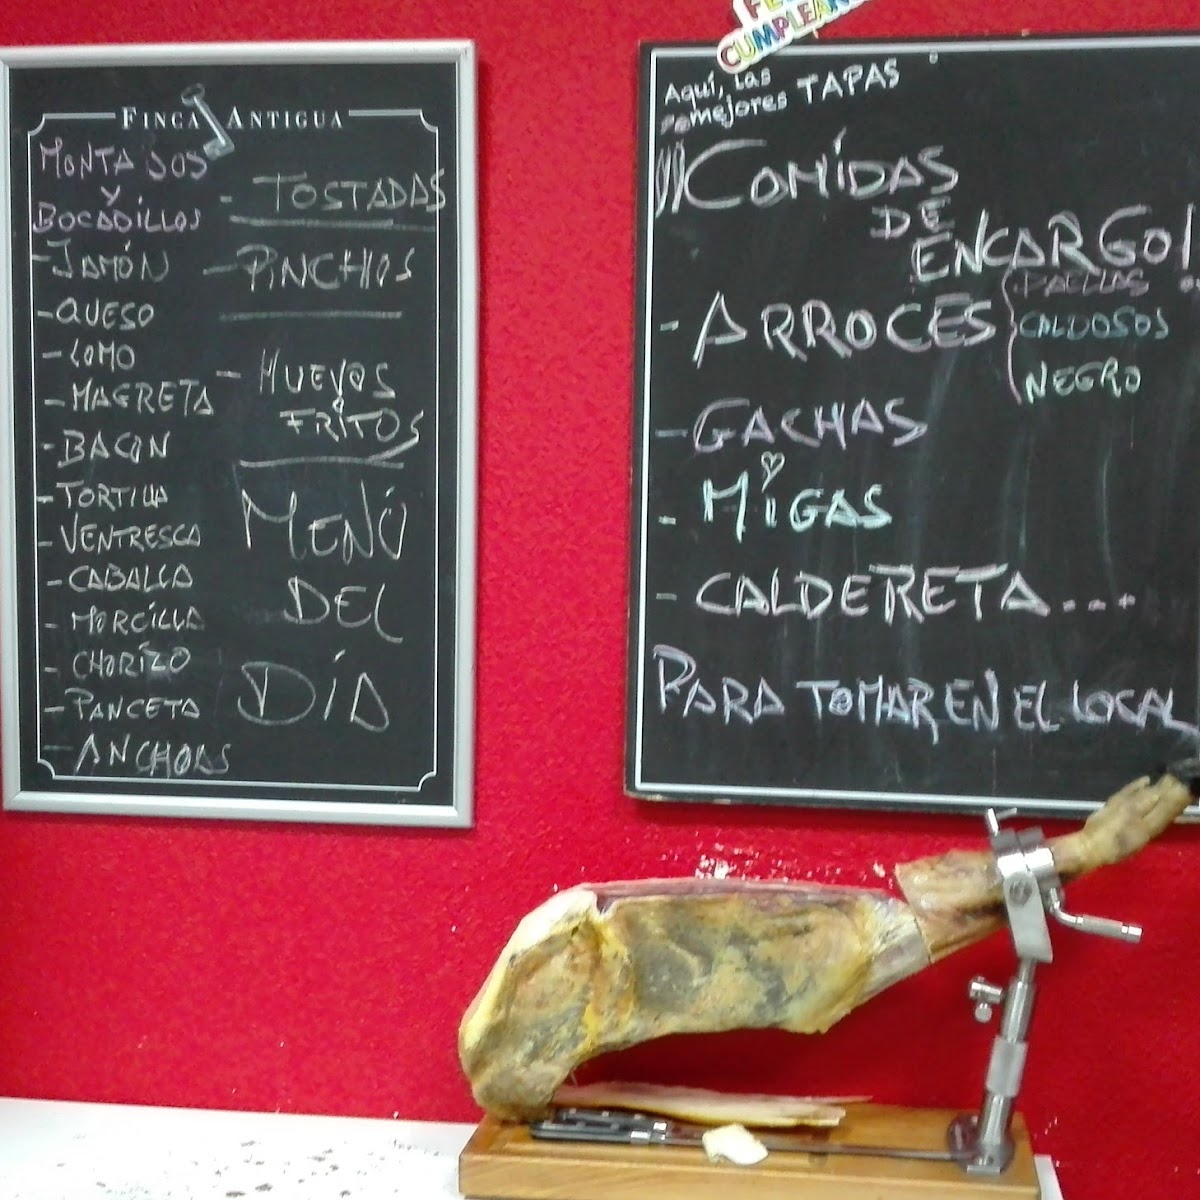 FINCA ANTIGUA
MONTADOS
Y
BOCADILLOS
- JAMÓN
- QUESO
- LOMO
- MAGRETA
- BACON
- TORTILLA
- VENTRESCA
- CABALLA
- MORCILLA
- CHORIZO
- PANCETA
- ANCHOAS
- TOSTADAS
- PINCHOS
- HUEVOS
FRITOS
MENÚ
DEL
DÍA
CUMPLEAÑ
Aquí, las
mejores TAPAS
COMIDAS
DE
ENCARGO!
- ARROCES
PAELLAS
CALDOSOS
NEGRO
- GACHAS
- MIGAS
- CALDERETA....
PARA TOMAR EN EL LOCAL